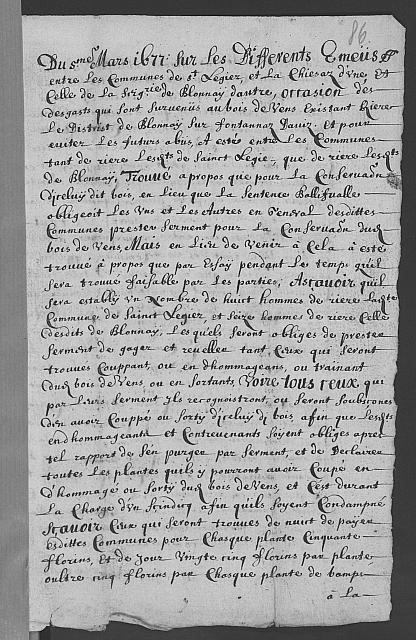 86.
Du 5me Mars 1677 sur Les Differents Emeüs
entre Les Communes de st Legier, et La Chiesaz d'une, Et
Celle de La Seigrie de Blonnay d'autre, occasion des
desgasts qui sont survenus au bois de Vens Existant Riere
Le District de Blonnay sur fontannoz Daviz. Et pour
eviter Les futurs abus, A esté entre Les Communes
tant de riere Les dts de Sainct Legie, que de riere Les dts
de Blonnay, Trouvé à propos que pour La Conservaon
d'iceluy dit bois, en Lieu que La Sentence Baillivalle
obligeoit Les Uns et Les Autres en General desdittes
Communes prester Serment pour La Conservaon dud
bois de Vens, Mais en Lieu de Venir à Cela à esté
trouvé à propos que par Essay pendant Le temps qu'il
sera trouvé faisable par Les parties, Ascavoir qu'il
sera establÿ Un Nombre de huict hommes de riere Ladte
Commune de Sainct Legier, et Seize hommes de riere Celle
desdits de Blonnay, Lesquels seront obliges de prester
Serment de gager et reveller tant Ceux qui seront
trouves Couppant, ou en dhommageans, ou trainant
dud bois de Vens ou en Sortants, Voire tous ceux qui
par Leurs Serment ils recognoistront, ou seront soubsconés
d'en avoir Couppé ou sorty d'iceluy dt bois afin que Les dts
endhommageants et Contrevenants soyent obliges apres
tel rapport de s'en purger par Serment, et de Declairer
toutes Les plantes qu'ils y pourront avoir Coupé en
d'hommagé ou sorty dud bois de Vens, et C'est durant
La Charge d'un Scindicq afin qu'ils soyent Condampné
Sçavoir Ceux qui seront trouves de nuict de payer
Esdittes Communes pour Chasque plante Cinquante
florins, Et de jour Vingte cinq florins par plante
oultre cinq florins par Chasque plante de bamp
à La